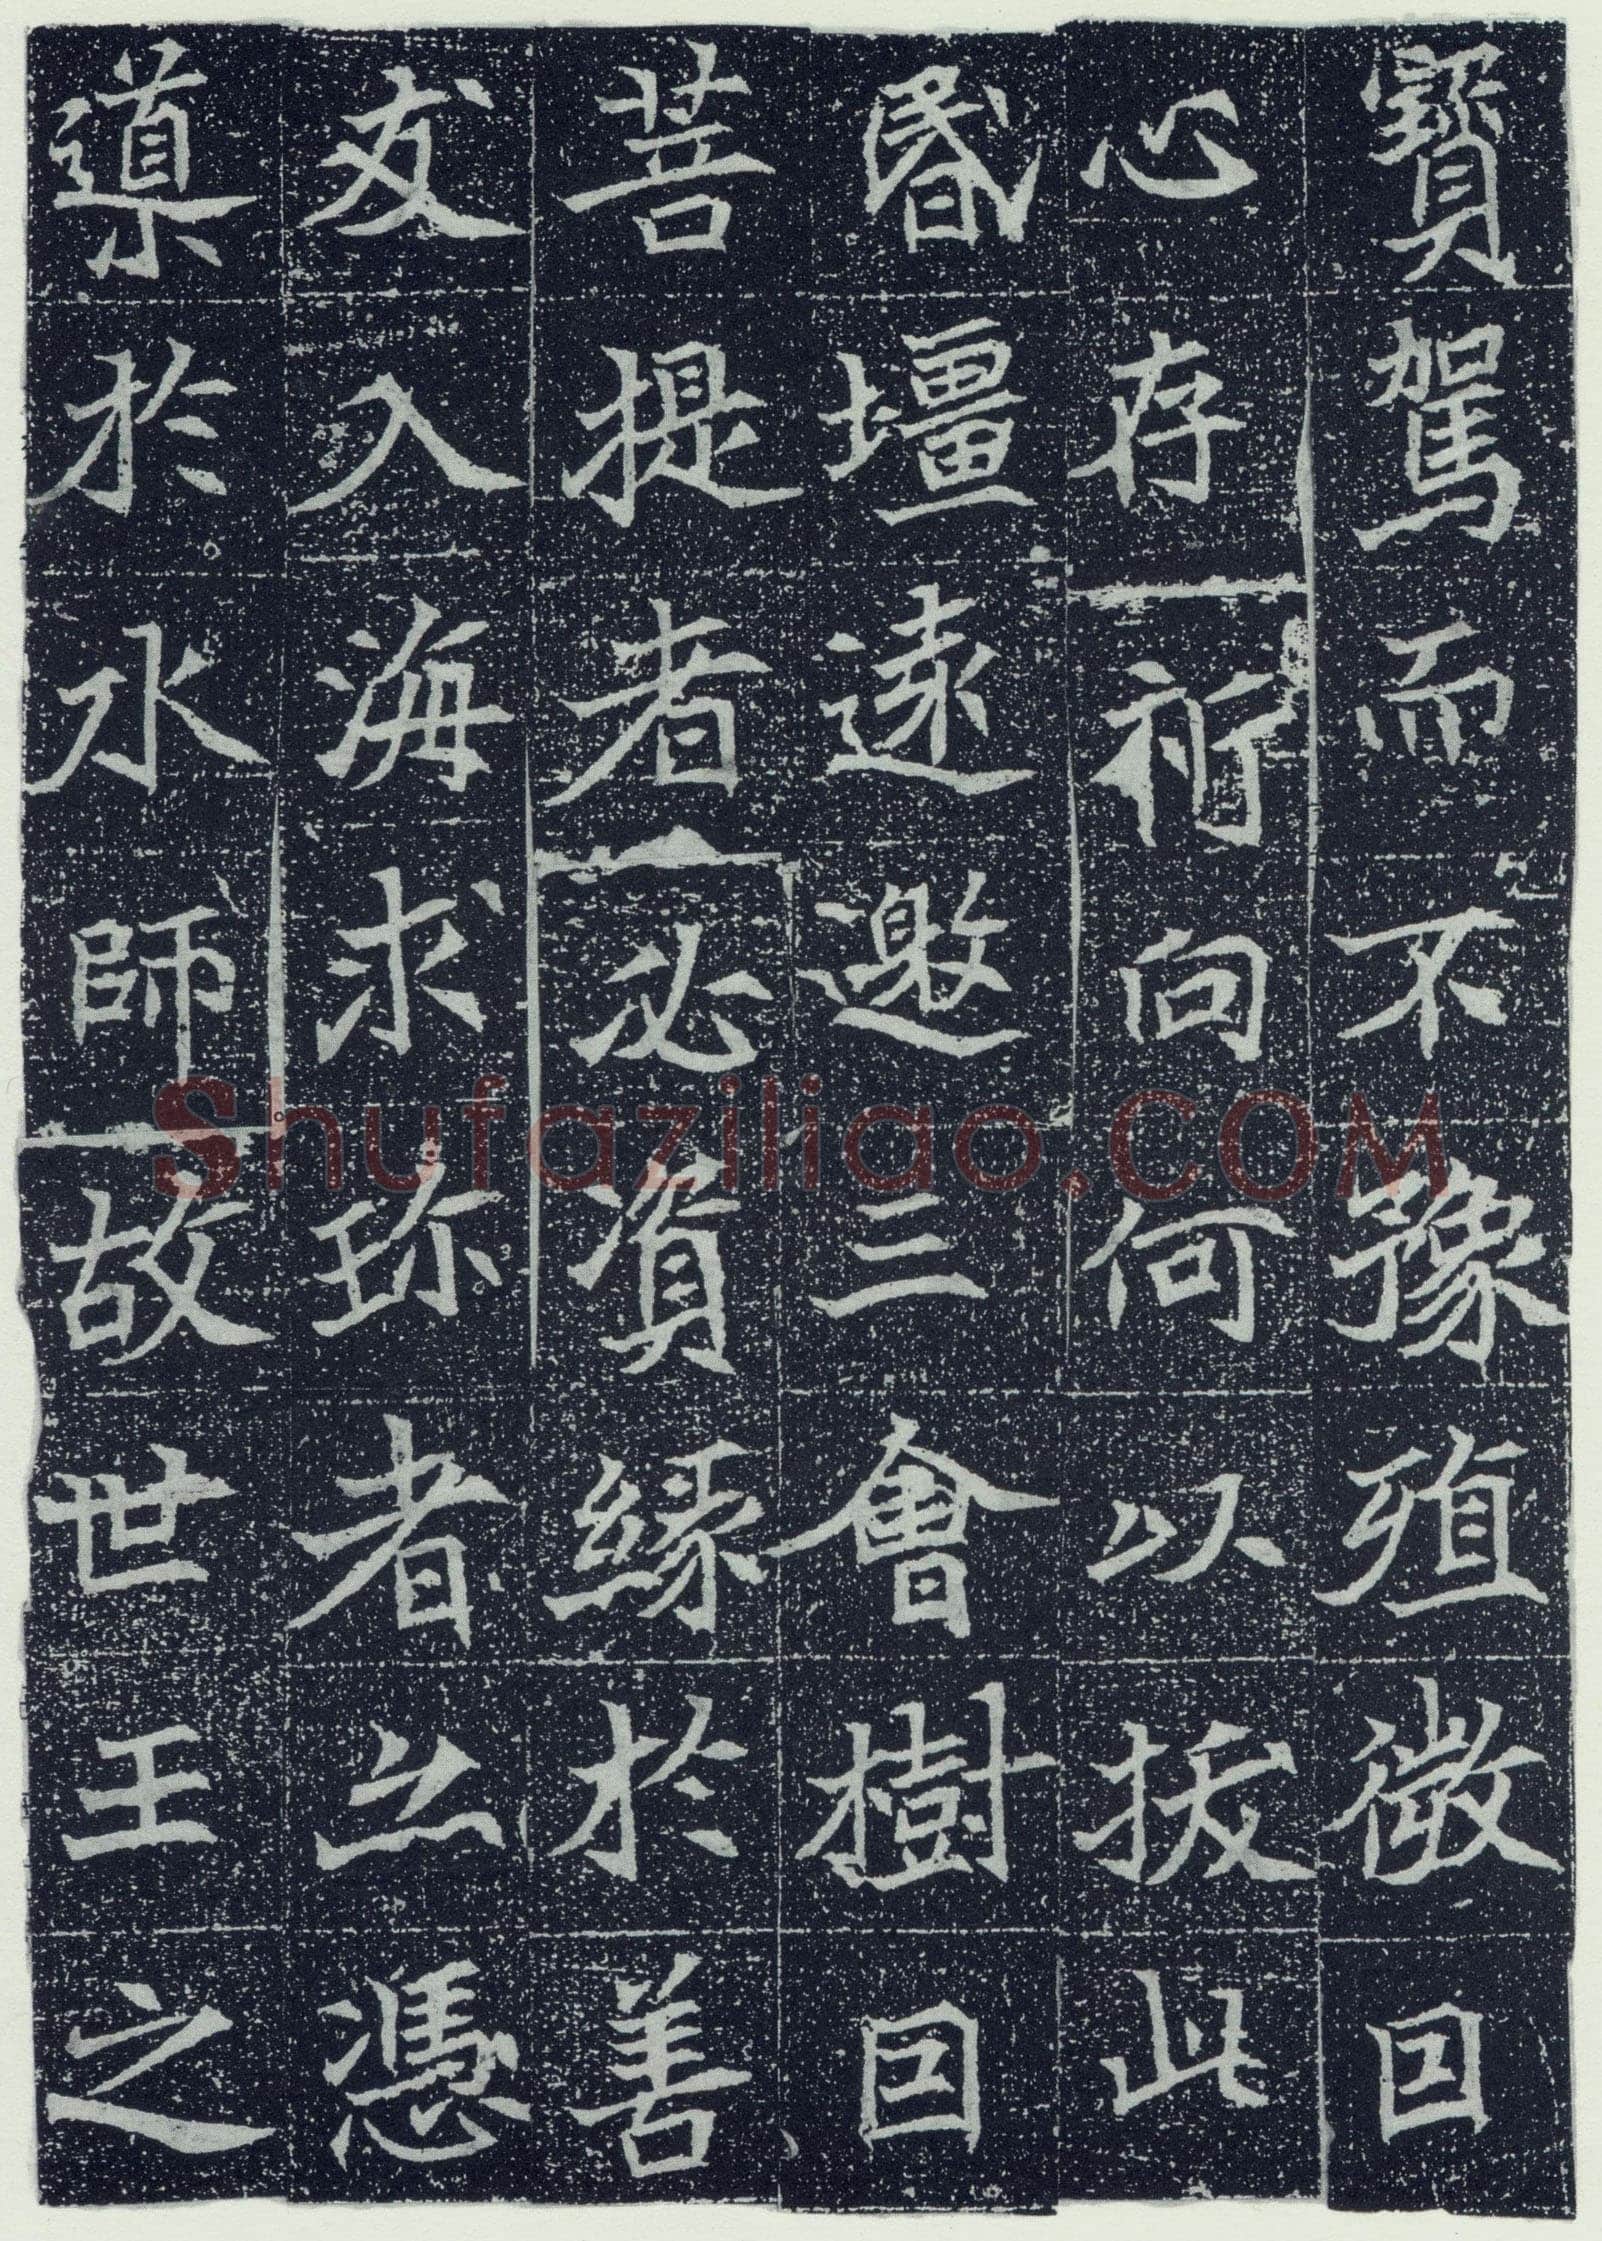 寶駕而不豫殖微囙
心存祈向何以拔此
昬壃遠邀三會樹囙
菩提者必資緣於善
友入海求珎者憑
導於水師故世王之
Shufaziliao.COM